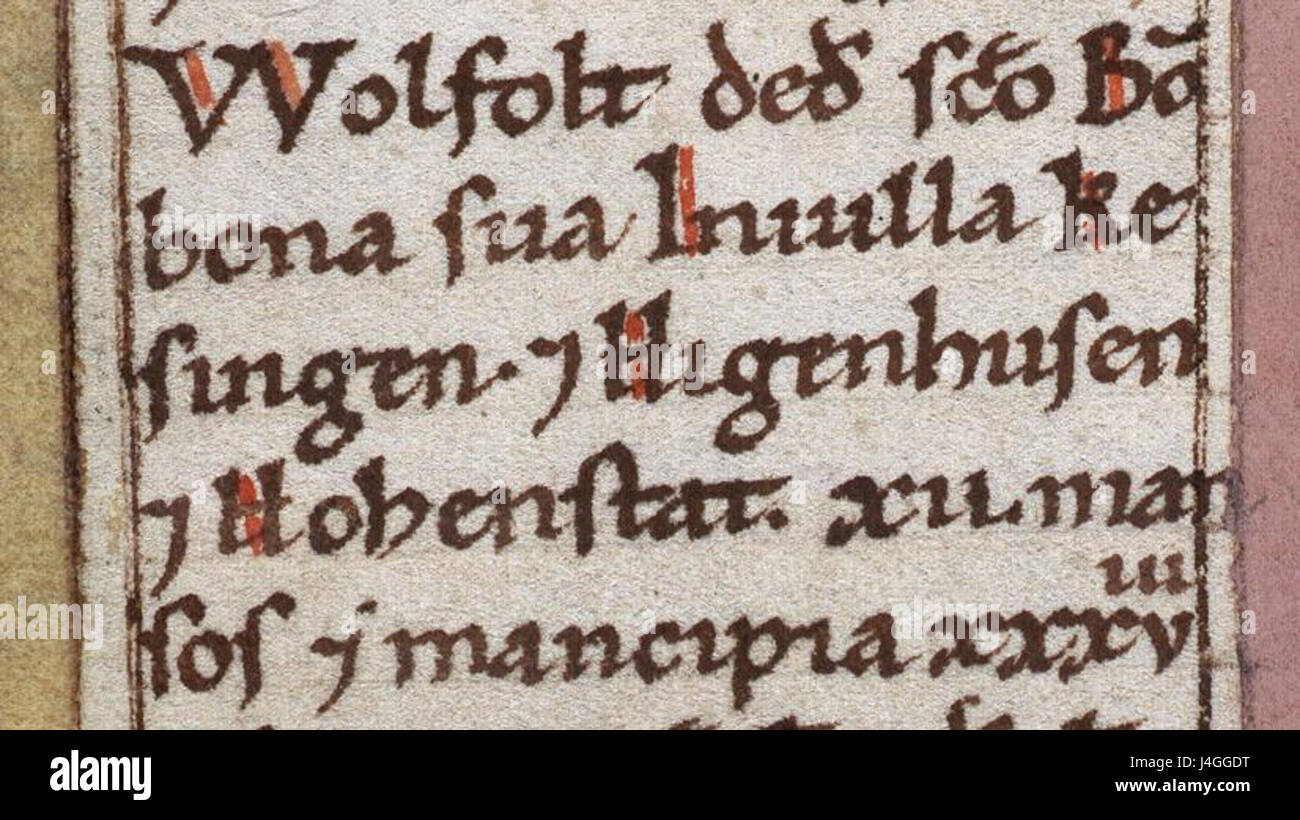 Wolfolt ded̄ scō Bō
bona sua Inuilla Ke
singen. ⁊ Higenhusen
⁊ Hohenstat. xii. man
sos ⁊ mancipia xxxviii
alamy
Image ID: J4GGDT
www.alamy.com